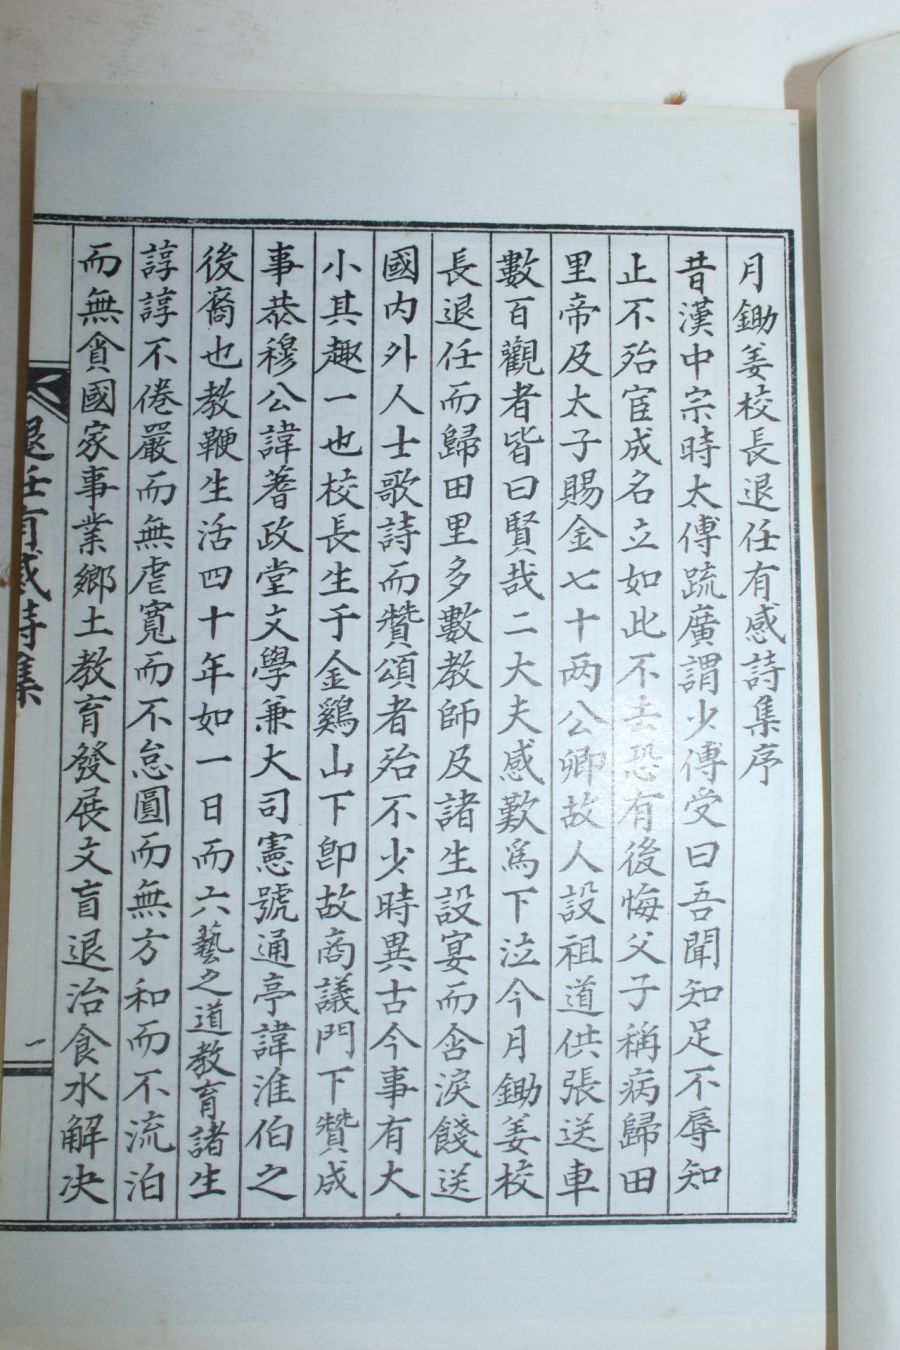 月鋤姜校長退任有感詩集序
昔漢中宗時太傅疏廣謂少傅受曰吾聞知足不辱知
止不殆宦成名立如此不去恐有後悔父子稱病歸田
里帝及太子賜金七十两公卿故人設祖道供張送車
數百觀者皆曰賢哉二大夫感歎爲下泣今月鋤姜校
長退任而歸田里多數教師及諸生設宴而含淚餞送
國内外人士歌詩而贊頌者殆不少時異古今事有大
小其趣一也校長生于金鷄山下卽故商議門下贊成
事恭穆公諱蓍政堂文學兼大司憲號通亭諱淮伯之
後裔也教鞭生活四十年如一日而六藝之道教育諸生
諄諄不倦嚴而無虐寬而不怠圓而無方和而不流泊
而無貪國家事業鄉土教育發展文盲退治食水解决
退任有感詩集
一